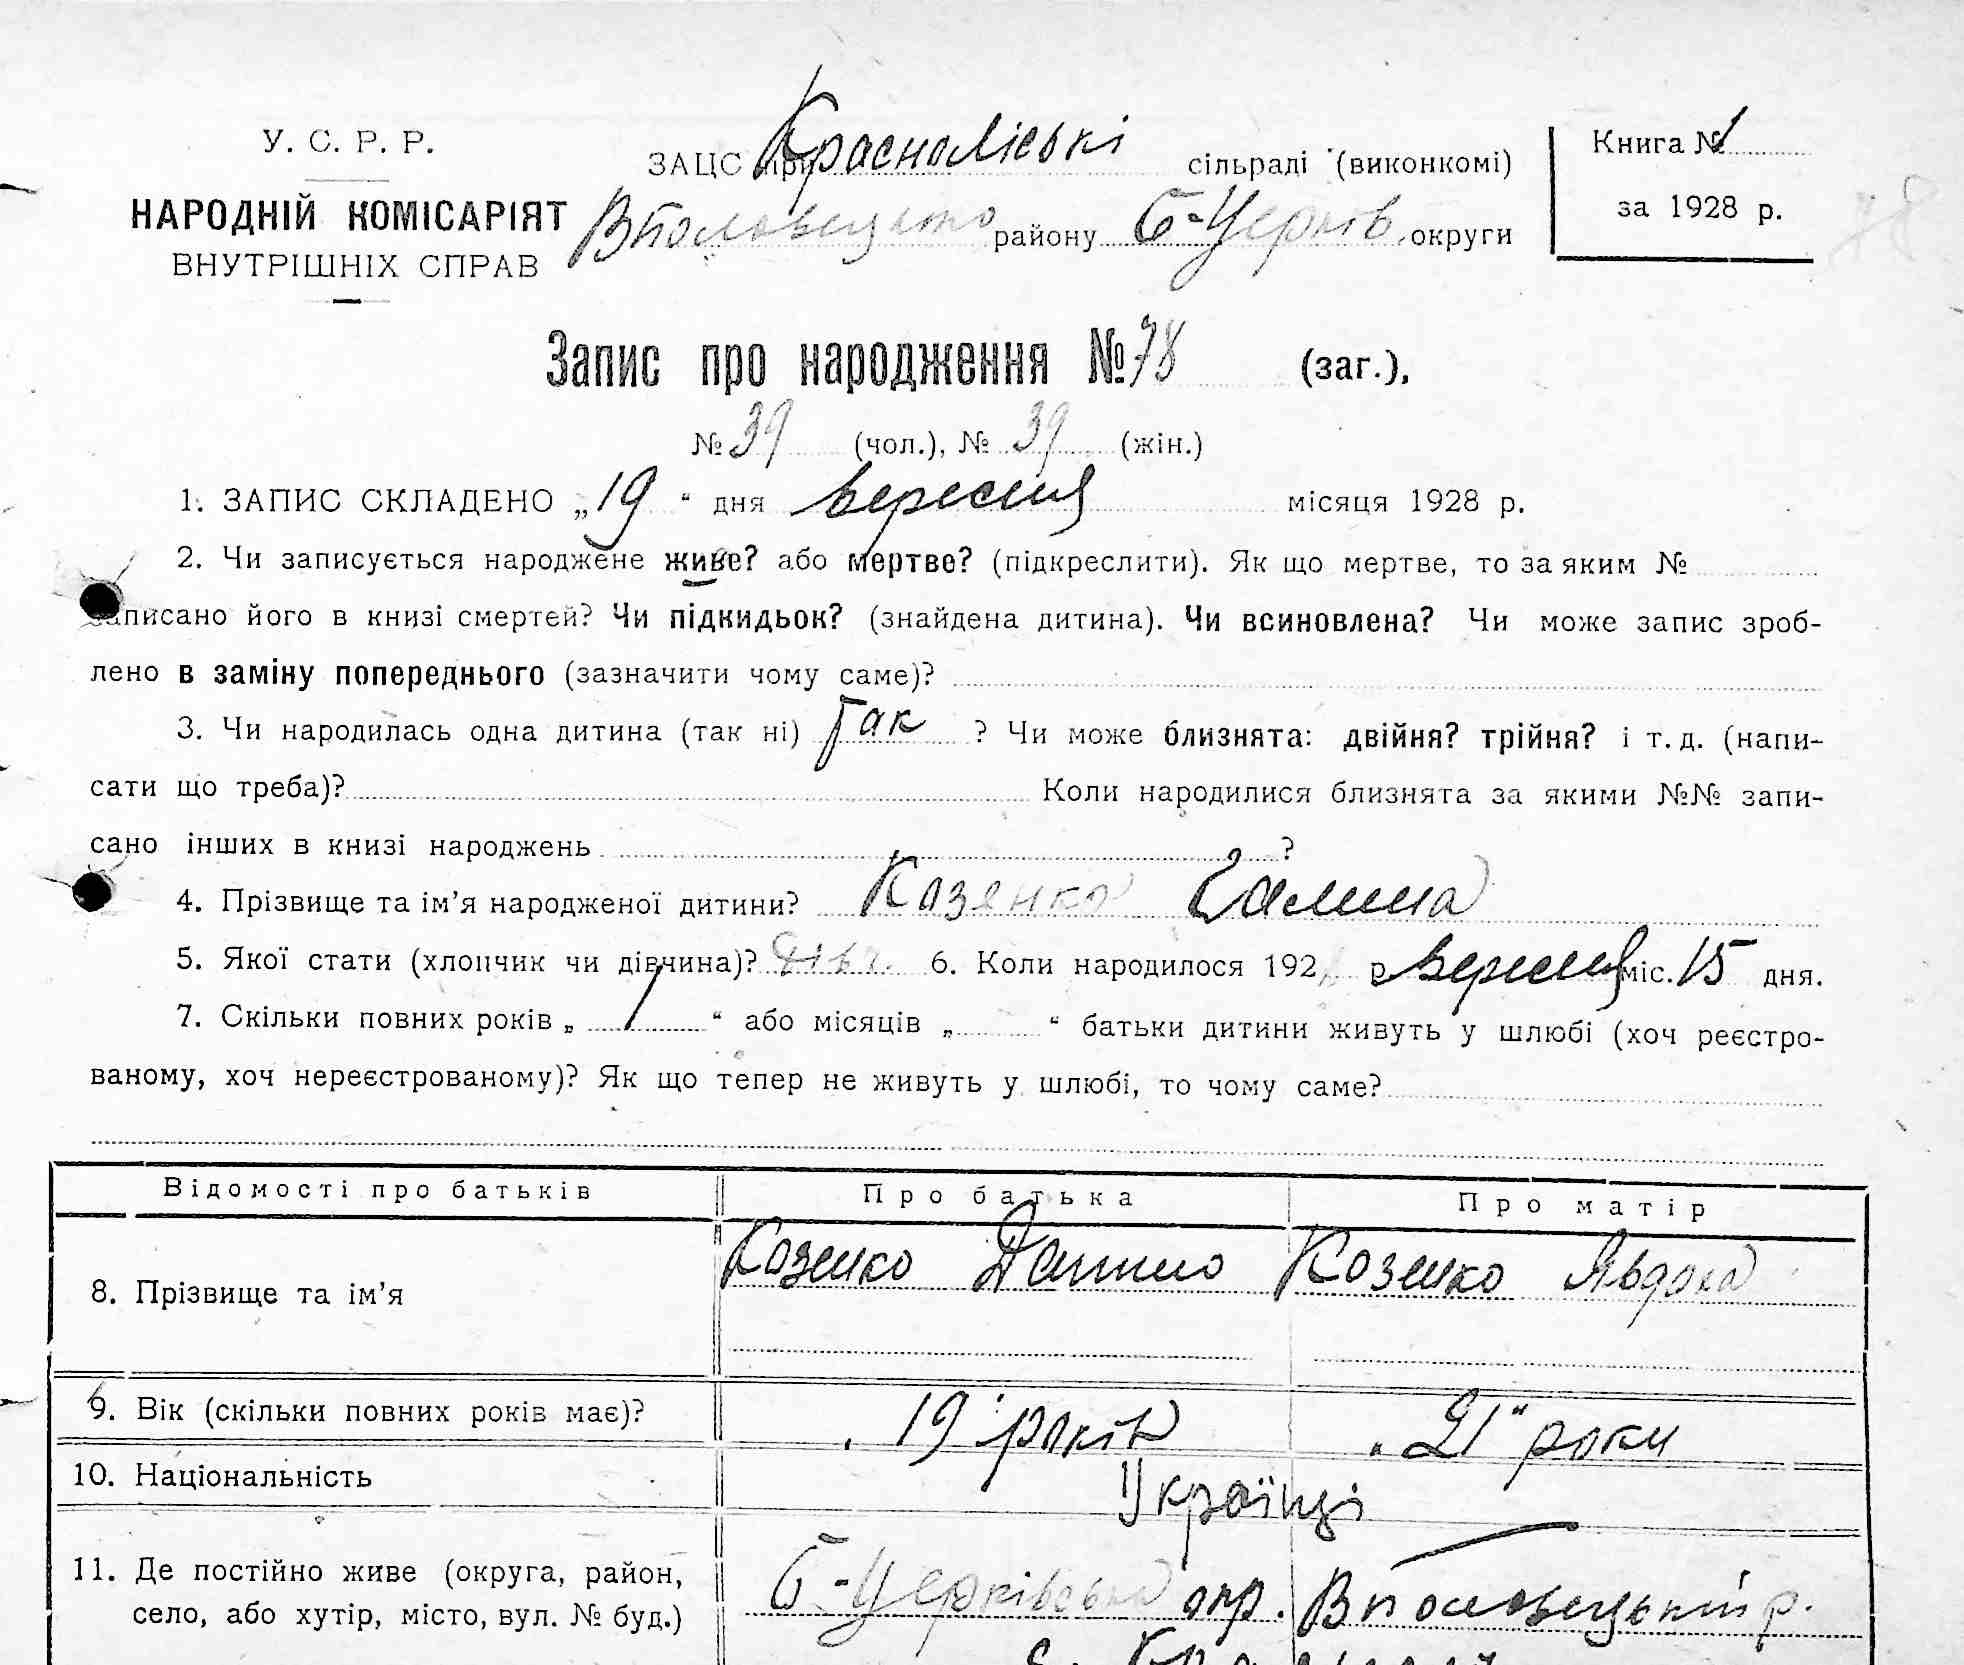 У. С. Р. Р.
НАРОДНІЙ КОМІСАРІЯТ
ВНУТРІШНІХ СПРАВ
ЗАЦС при Красноліські сільраді (виконкомі)
Вполовецького району Б-Церків. округи
Книга № 1
за 1928 р.
78
Запис про народження № 78 (заг.),
№ 39 (чол.), № 39 (жін.)
1. ЗАПИС СКЛАДЕНО „19“ дня вересня місяця 1928 р.
2. Чи записується народжене живе? або мертве? (підкреслити). Як що мертве, то за яким №
записано його в книзі смертей? Чи підкидьок? (знайдена дитина). Чи всиновлена? Чи може запис зроб-
лено в заміну попереднього (зазначити чому саме)?
3. Чи народилась одна дитина (так ні) Так ? Чи може близнята: двійня? трійня? і т. д. (напи-
сати що треба)? Коли народилися близнята за якими №№ запи-
сано інших в книзі народжень ?
4. Прізвище та ім’я народженої дитини? Козенко Галина
5. Якої стати (хлопчик чи дівчина)? Дівч. 6. Коли народилося 1928 р. вересня міс. 15 дня.
7. Скільки повних років „ 1 “ або місяців „ “ батьки дитини живуть у шлюбі (хоч реєстро-
ваному, хоч нереєстрованому)? Як що тепер не живуть у шлюбі, то чому саме?
Відомості про батьків Про батька Про матір
8. Прізвище та ім’я Козенко Данило Козенко Явдоха
9. Вік (скільки повних років має)? „19“ років „21“ роки
10. Національність Українці
11. Де постійно живе (округа, район, Б-Церківська окр. Вполовецький р.
село, або хутір, місто, вул. № буд.)